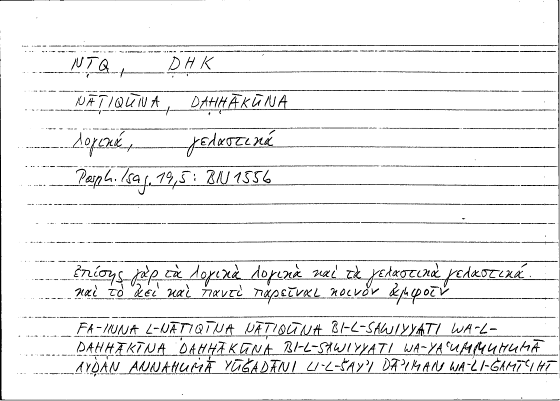 NṬQ, ḌḤK
NĀṬIQŪNA, ḌAḤḤĀKŪNA
λογικά, γελαστικά
Porph. Isag. 19,5: BN 1556
ἐπίσης γὰρ τὰ λογικὰ λογικὰ καὶ τὰ γελαστικὰ γελαστικά.
καὶ τὸ ἀεὶ καὶ παντὶ παρεῖναι κοινὸν ἀμφοῖν
FA-INNA L-NĀṬIQĪNA NĀṬIQŪNA BI-L-SAWIYYATI WA-L-
ḌAḤḤĀKĪNA ḌAḤḤĀKŪNA BI-L-SAWIYYATI WA-YAʿUMMUHUMĀ
AYḌAN ANNAHUMĀ YŪǦADĀNI LI-L-ŠAYʾI DĀʾIMAN WA-LI-ǦAMĪʿIHĪ